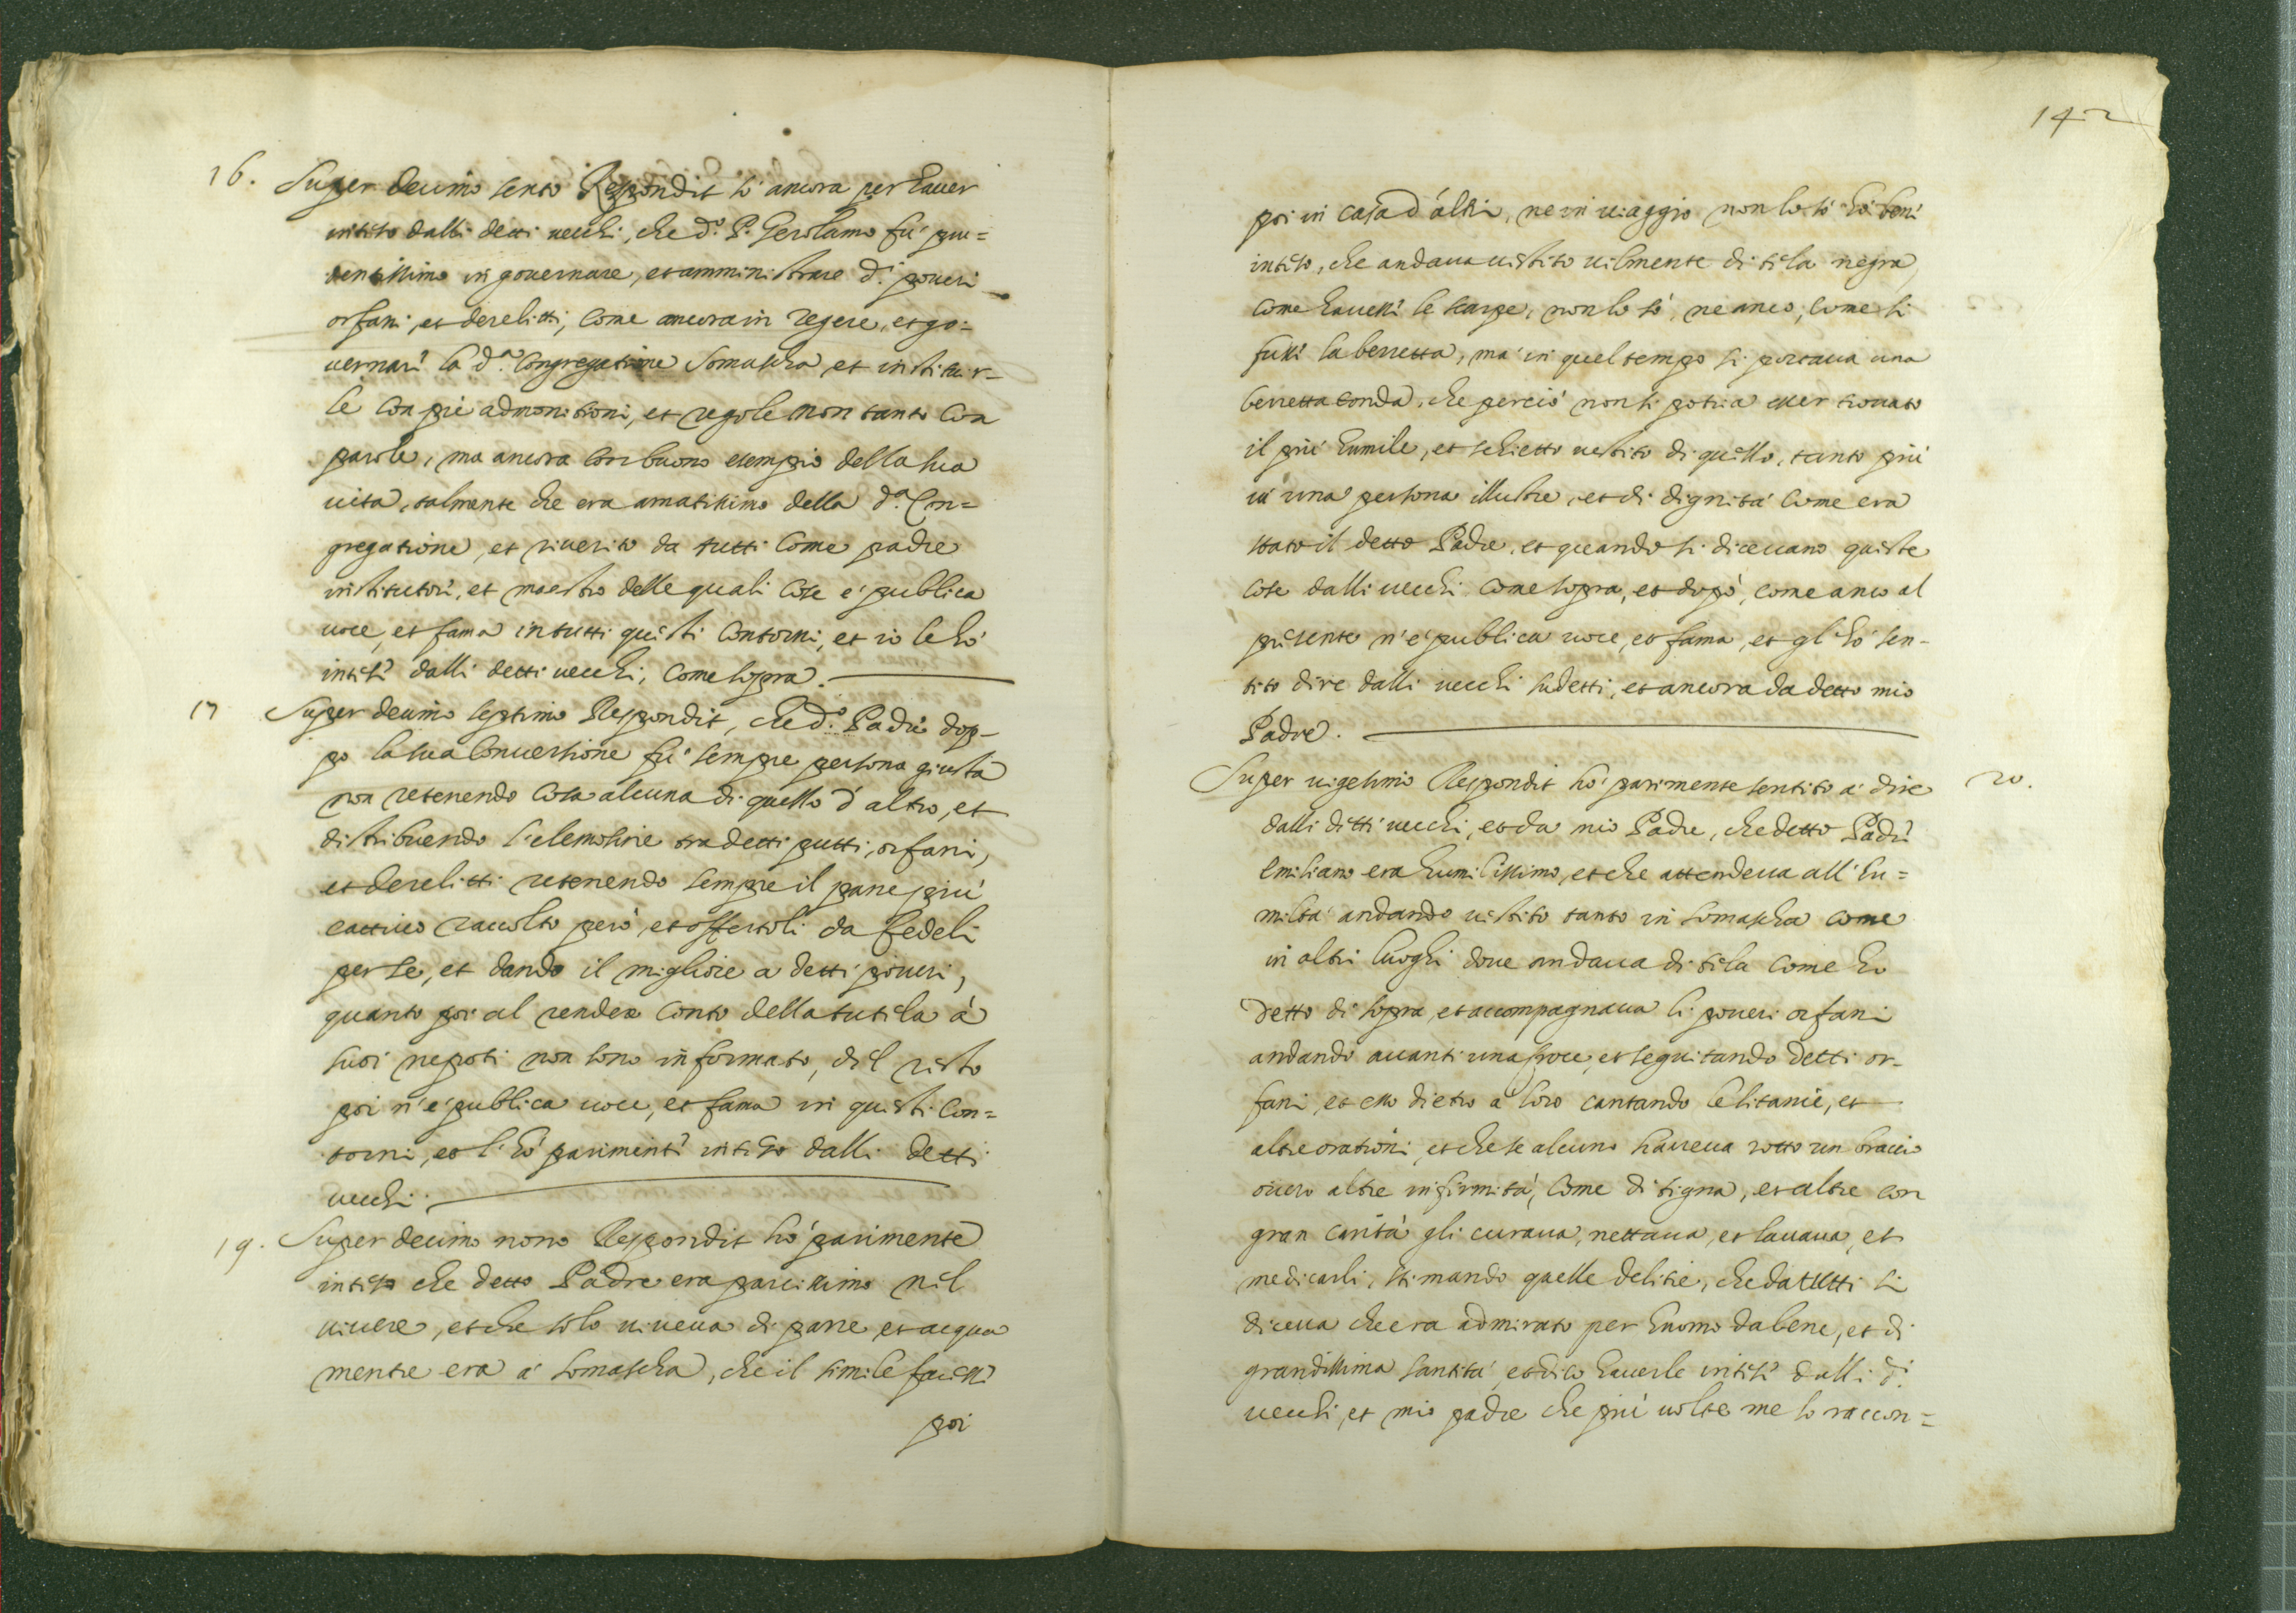 16. Super decimo sexto Respondit so ancora per haver
inteso dalli detti vecchi, che d.º P. Gerolamo fu pru=
dentissimo in governare, et amministrare d.i poveri
orfani, et derelitti, come ancora in regere, et go=
vernare la d.ª Congregatione Somascha, et instituir=
le con pie admonitioni, et regole non tanto con
parole, ma ancora con buono esempio della sua
vita, talmente che era amatissimo della d.ª Con=
gregatione, et riverito da tutti come padre
institutore, et maestro delle quali cose é publica
voce, et fama in tutti questi contorni, et io le hó
intese dalli detti vecchi, come sopra.
17 Super decimo septimo Respondit, che d.º Padre dop=
po la sua conversione fú sempre persona giusta
non retenendo cosa alcuna di quello d'altro, et
distribuendo l'elemosine tra detti putti, orfani,
et derelitti retenendo sempre il pane piú
cattivo raccolto peró, et offertoli da fedeli
per se, et dando il migliore a detti poveri,
quanto poi al render conto della tutela á
suoi nepoti non sono informato, del resto
poi n'é publica voce, et fama in questi con=
torni, et l'hó parimente inteso dalli detti
vecchi.
19. Super decimo nono Respondit hó parimente
inteso che detto Padre era parcissimo nel
vivere, et che solo viveva di pane et acqua
mentre era á Somascha, che il simile facesse
poi
142
poi in casa d'altri, ne in viaggio non lo só hó bene
inteso, che andava vestito vilmente di tela negra,
come havesse le scarpe, non lo só, ne anco, come si
fusse la berretta, má in quel tempo si portava una
berretta tonda, che perció non si potria esser trovato
il piú humile, et schietto vestito di quello, tanto piú
in una persona illustre, et di dignitá come era
stato il detto Padre, et quando si dicevano queste
cose dalli vecchi come sopra, et dopó, come anco al
presente n'é publica voce, et fama, et gl'hó sen=
tito dire dalli vecchi sudetti, et ancora da detto mio
Padre.
20. Super vigesimo Respondit hó parimente sentito á dire
dalli detti vecchi, et da mio Padre, che detto Padre
Emiliano era humilissimo, et che attendeva all'hu=
miltá andando vestito tanto in Somascha come
in altri luoghi dove andava di tela come ho
detto di sopra, et accompagnava li poveri orfani
andando avanti una croce, et seguitando detti or=
fani, et esso dietro á loro cantando le litanie, et
altre orationi, et che se alcuno haveva rotto un braccio
overo altre infirmitá, come di tigna, et altre con
gran caritá gli curava, nettava, et lavava, et
medicarli, stimando quelle delitie, che da tutti si
diceva che era admirato per huomo da bene, et di
grandissima santitá, et dico haverle intese dalli d.i
vecchi, et mio padre che piú volte me lo raccon=